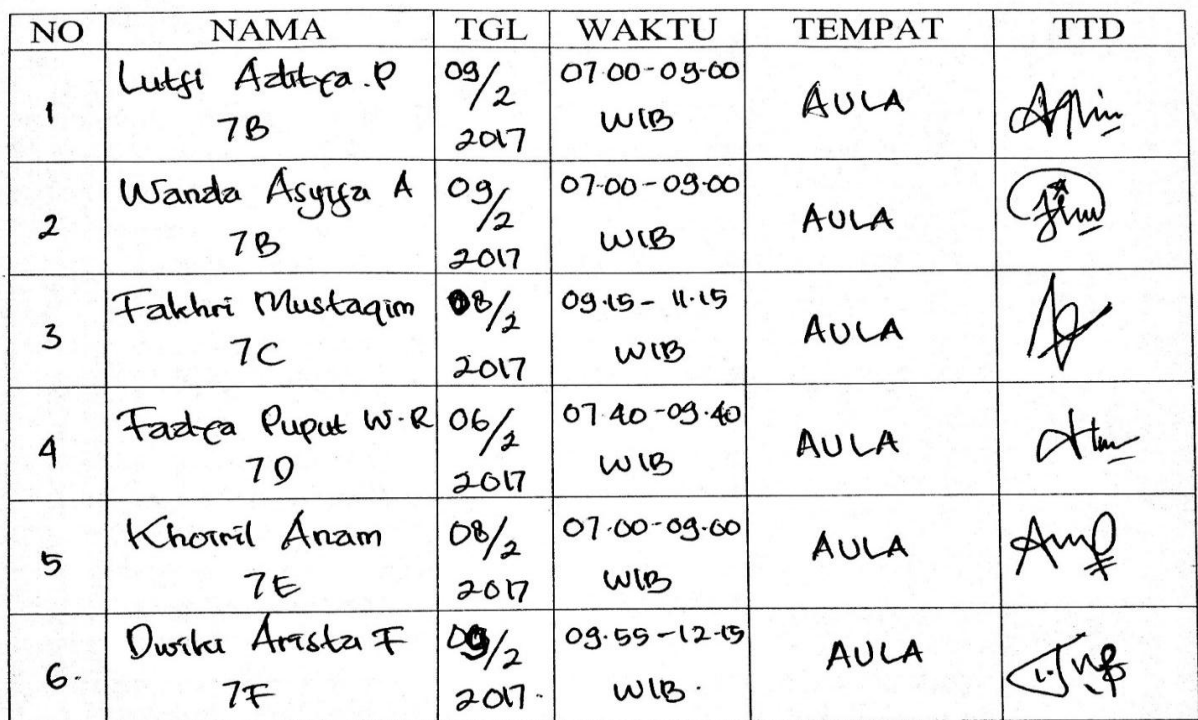 NO NAMA TGL WAKTU TEMPAT TTD
1 Lutfi Aditya.P 7B 09/2 2017 07.00-09.00 WIB AULA
2 Wanda Asyifa A 7B 09/2 2017 07.00-09.00 WIB AULA
3 Fakhri Mustaqim 7C 08/2 2017 09.15- 11.15 WIB AULA
4 Fadya Puput W.R 7D 06/2 2017 07.40-09.40 WIB AULA
5 Khoiril Anam 7E 08/2 2017 07.00-09.00 WIB AULA
6. Dwiki Arista F 7F 09/2 2017. 09.55-12.15 WIB. AULA